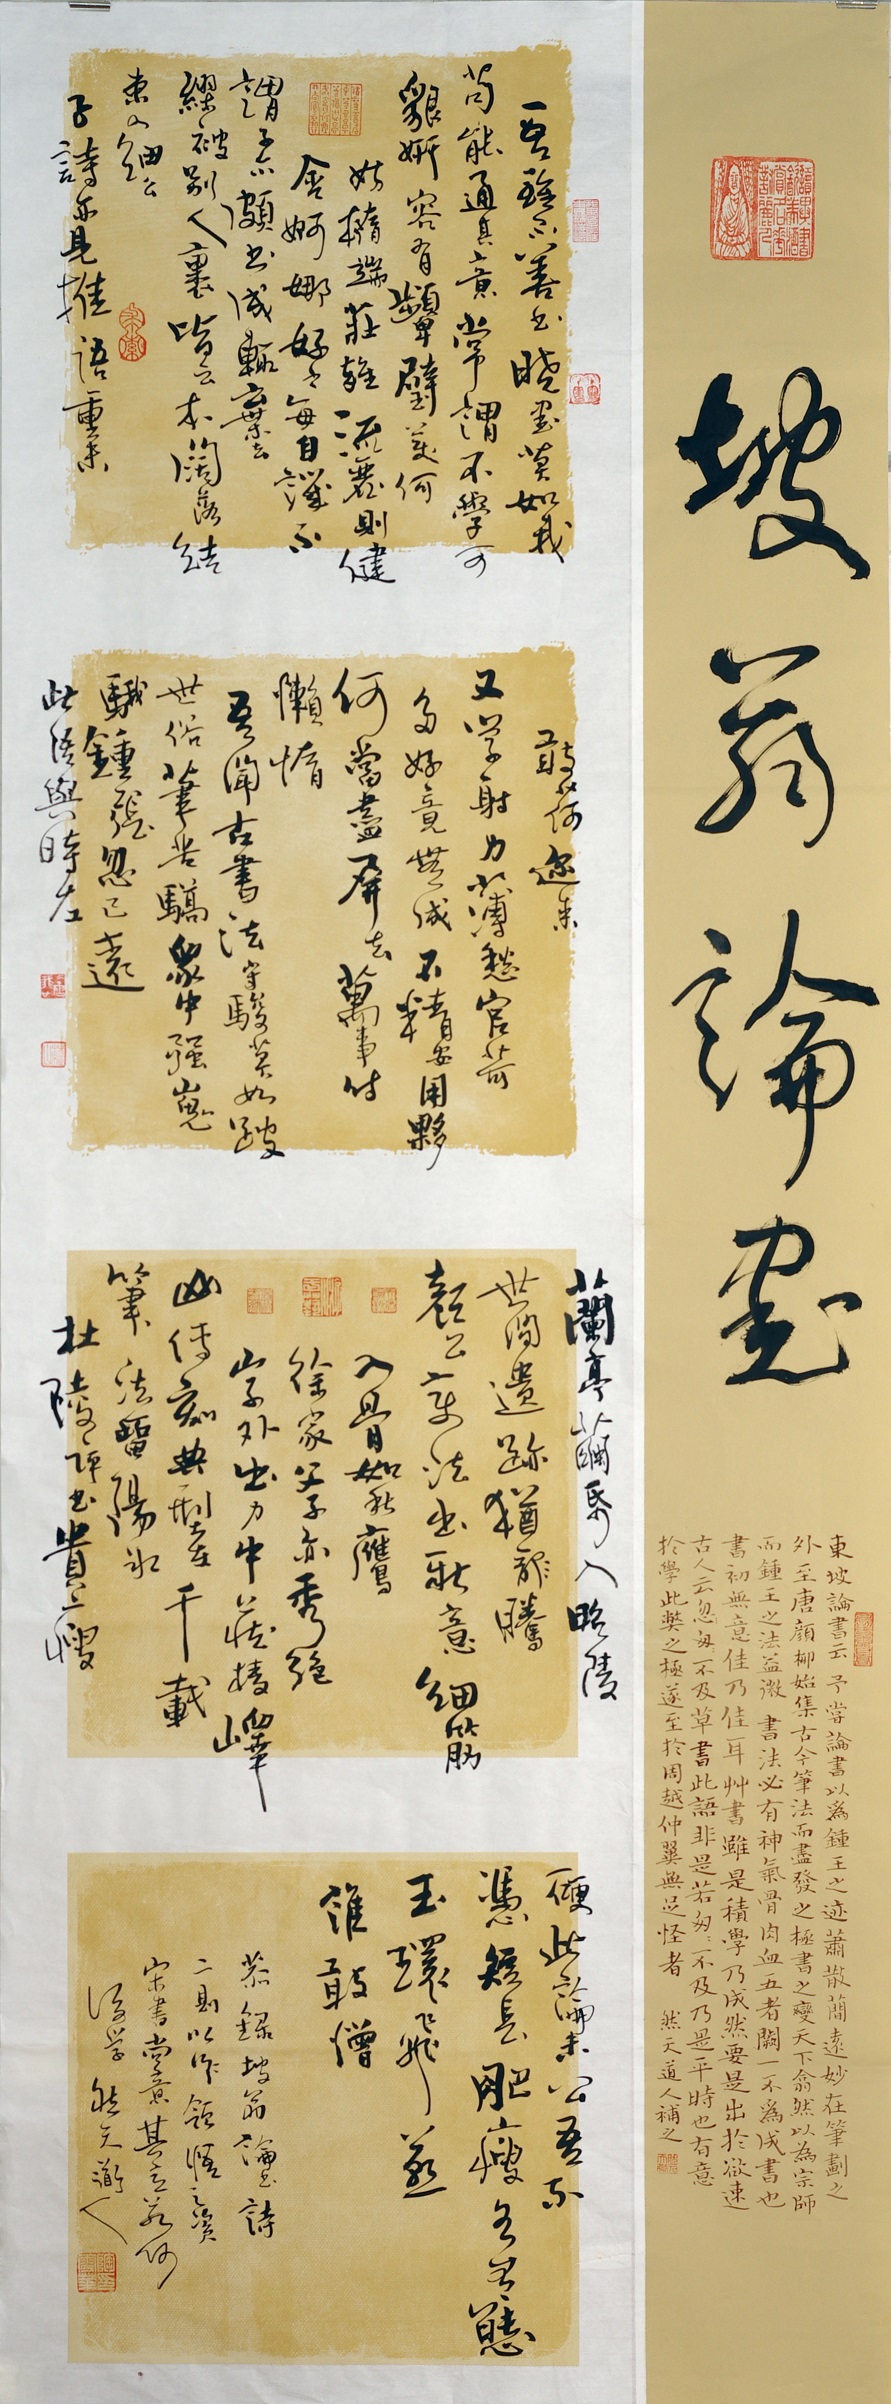 坡翁論書
東坡論書云予嘗論書以爲鍾王之迹蕭散簡遠妙在筆劃之
外至唐顏柳始集古今筆法而盡發之極書之變天下翕然以為宗師
而鍾王之法益微 書法必有神氣骨肉血五者闕一不爲成書也
書初無意佳乃佳耳艸書雖是積學乃成然要是出於欲速
古人云忽匆不及草書此語非是若匆匆不及乃是平時也有意
於學此獘之極遂至於周越仲翼無足怪者 然天道人補之
吾雖不善書曉書莫如我
苟能通其意常謂不學可
貌妍容有顰璧美何
妨橢端莊雜流麗剛健
含婀娜好之每自譏不
謂子亦頗書成輒棄去
繆被別人裹皆云本闊落結
束入細么
子詩亦見推語重未
敢荷邇來
又學射力薄愁官笴
多好竟無成不精安用夥
何當盡屏去萬事付
懶惰
吾聞古書法守駿莫如跛
世俗筆苦驕眾中強嵬
騀鍾張忽已遠
此語與時左
蘭亭繭紙入昭陵
世間遺跡猶龍騰
顏公變法出新意細筋
入骨如秋鷹
徐家父子亦秀絕
字外出力中藏棱嶧
山傳刻典刑在千載
筆法留陽冰
杜陵評書貴瘦
硬此論未公吾不
憑短長肥瘦各有態
玉環飛燕
誰敢憎
恭錄坡翁論書詩
二則以作領悟之資
宋書尚意其意若何
後學然天道人